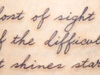 ost of sight
f the difficul
t shines sta